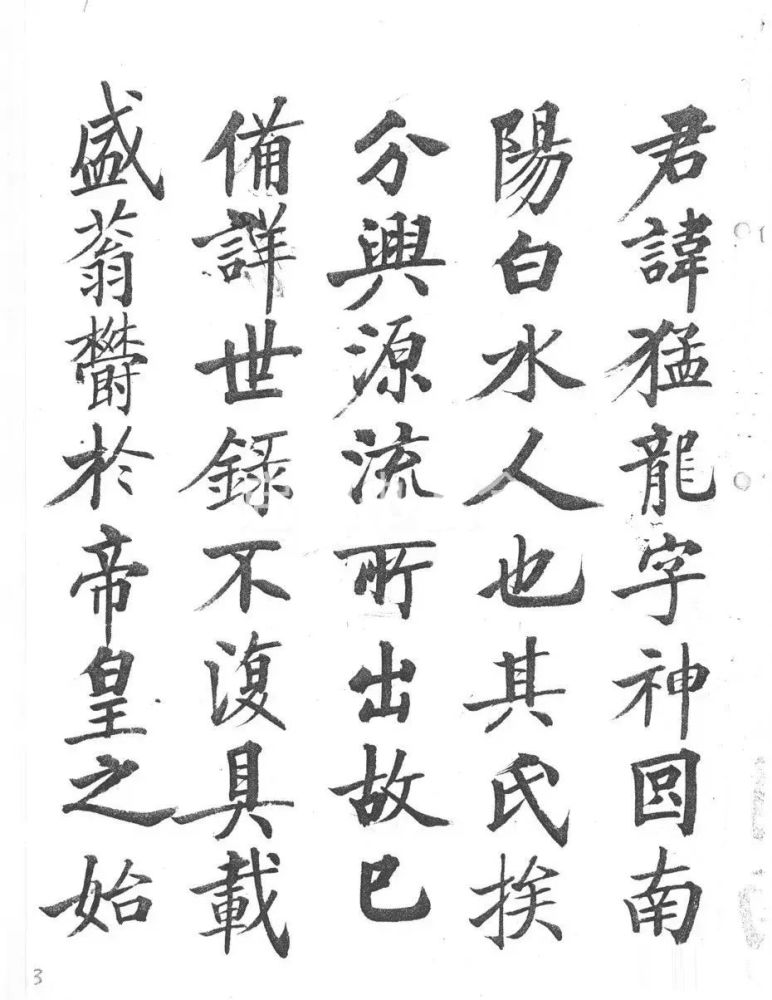 君諱猛龍字神囧南
陽白水人也其氏挨
分興源流所出故已
備詳世錄不復具載
盛蓊欝於帝皇之始
3